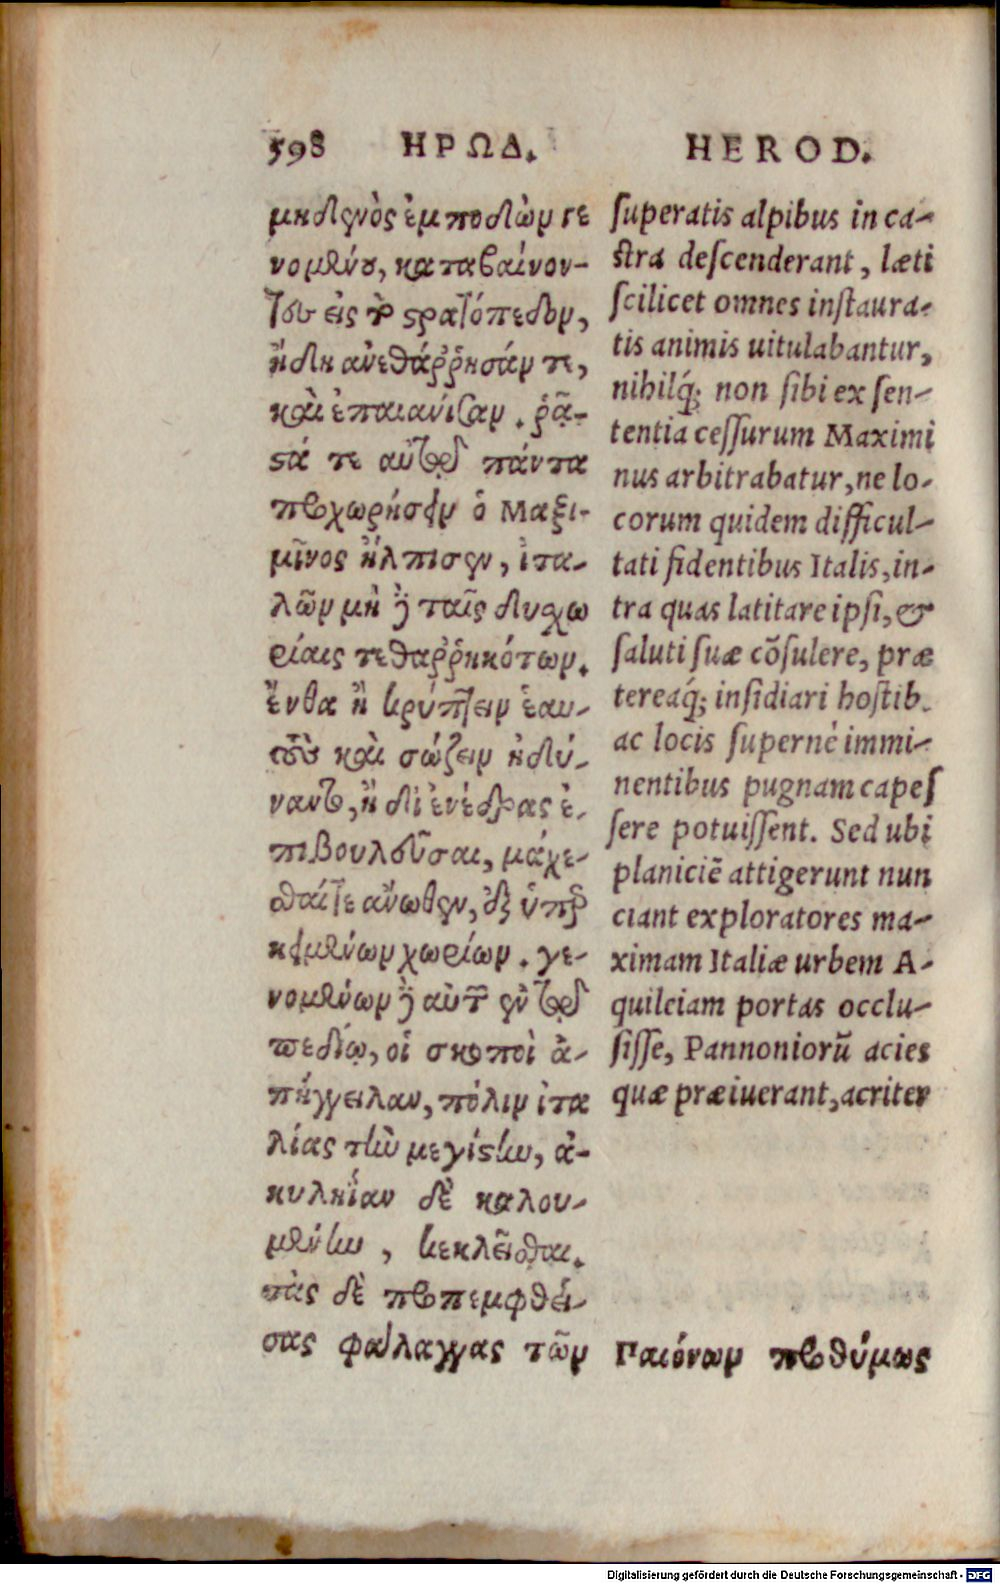 598 ΗΡΩΔ. HEROD.
μηδενὸς ἐμποδὼν γε
νομένου, καταβαίνον-
τες εἰς τὸ στρατόπεδον,
ἤδη ἀνεθάῤῥησάν τε,
καὶ ἐπαιάνιζαν. ῥᾷ-
στά τε αὐτοῖς πάντα
προχωρήσειν ὁ Μαξι-
μῖνος ἤλπισεν, ἰτα-
λῶν μὴ δὲ ταῖς δυσχω
ρίαις τεθαῤῥηκότων.
ἔνθα ἢ κρύπτειν ἑαυ-
τοὺς καὶ σώζειν ἠδύ-
ναντο, ἢ δι' ἐνέδρας ἐ-
πιβουλεῦσαι, μάχε-
σθαί τε ἄνωθεν, ἐξ ὑπερ
κειμένων χωρίων. γε-
νομένων δὲ αὐτῶν ἐν τῷ
πεδίῳ, οἱ σκοποὶ ἀ-
πήγγειλαν, πόλιν ἰτα
λίας τὴν μεγίστην, ἀ-
κυληΐαν δὲ καλου-
μένην, κεκλεῖσθαι.
τὰς δὲ προπεμφθεί-
σας φάλαγγας τῶν Παιόνων προθύμως
superatis alpibus in ca-
stra descenderant, læti
scilicet omnes instaura-
tis animis uitulabantur,
nihilq́; non sibi ex sen-
tentia cessurum Maximi
nus arbitrabatur, ne lo-
corum quidem difficul-
tati fidentibus Italis, in-
tra quas latitare ipsi, &
saluti suæ cõsulere, præ
tereaq́; insidiari hostib.
ac locis supernè immi-
nentibus pugnam capes
sere potuissent. Sed ubi
planiciẽ attigerunt nun
ciant exploratores ma-
ximam Italiæ urbem A-
quileiam portas occlu-
sisse, Pannoniorũ acies
quæ præiuerant, acriter
Digitalisierung gefördert durch die Deutsche Forschungsgemeinschaft - DFG